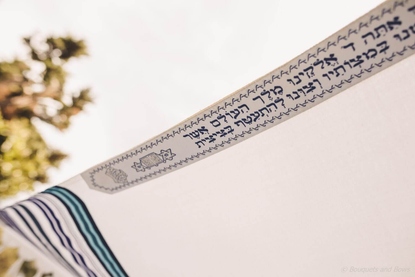 אתה ד' אלקינו מלך העולם אשר
במצותיו וצונו להתעטף בציצית